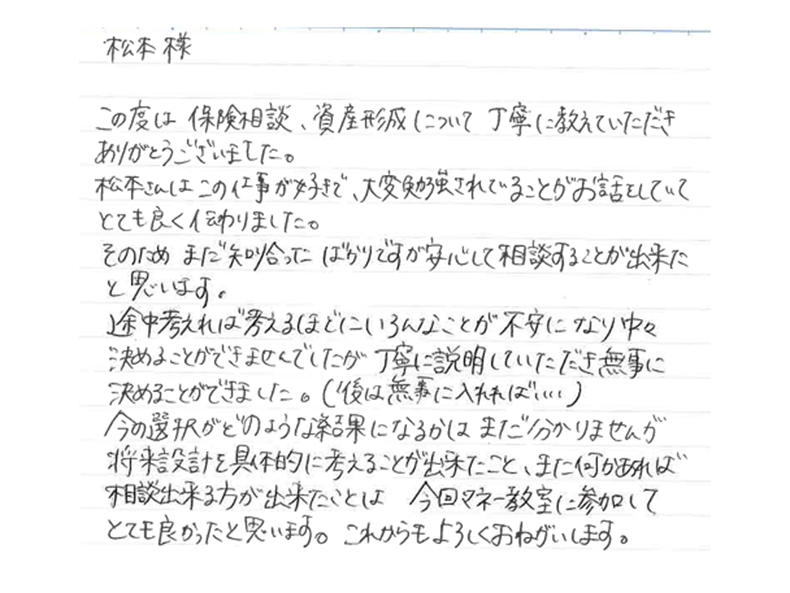 松本様
この度は 保険相談、資産形成について 丁寧に教えていただき
ありがとうございました。
松本さんはこの仕事が好きで、大変勉強されていることがお話をしていて
とても良く伝わりました。
そのため まだ知り合った ばかりですが安心して相談することが出来た
と思います。
途中考えれば考えるほどにいろんなことが 不安になり中々
決めることができませんでしたが 丁寧に説明していただき無事に
決めることができました。(後は無事に入れれば‥‥)
今の選択がどのような結果になるかは まだ分かりませんが
将来設計を具体的に考えることが出来たこと、また何かあれば
相談出来る方が出来たことは 今回マネー教室に参加して
とても良かったと思います。これからもよろしくおねがいします。